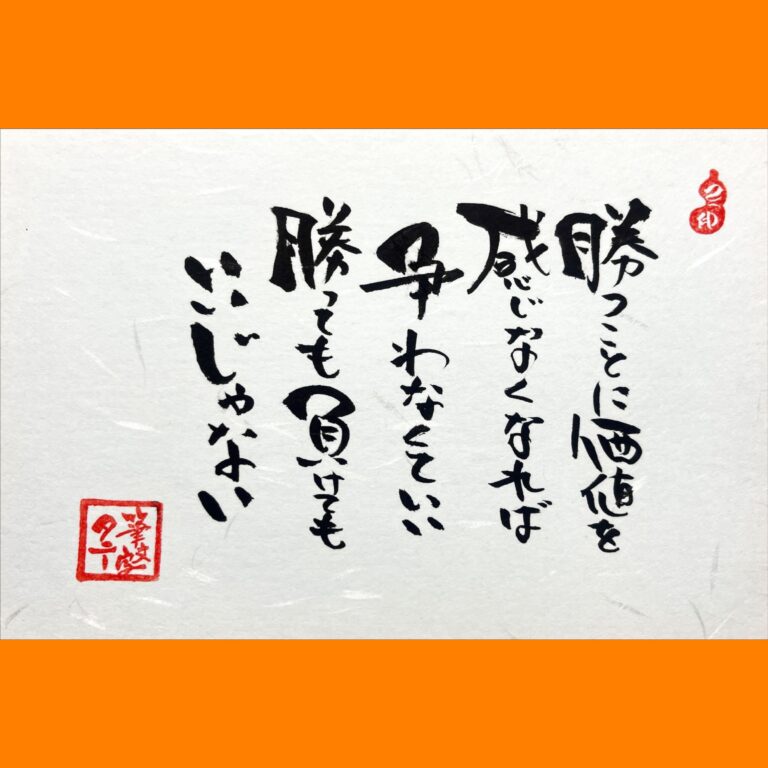 勝つことに価値を
感じなくなれば
争わなくていい
勝っても負けても
いいじゃない